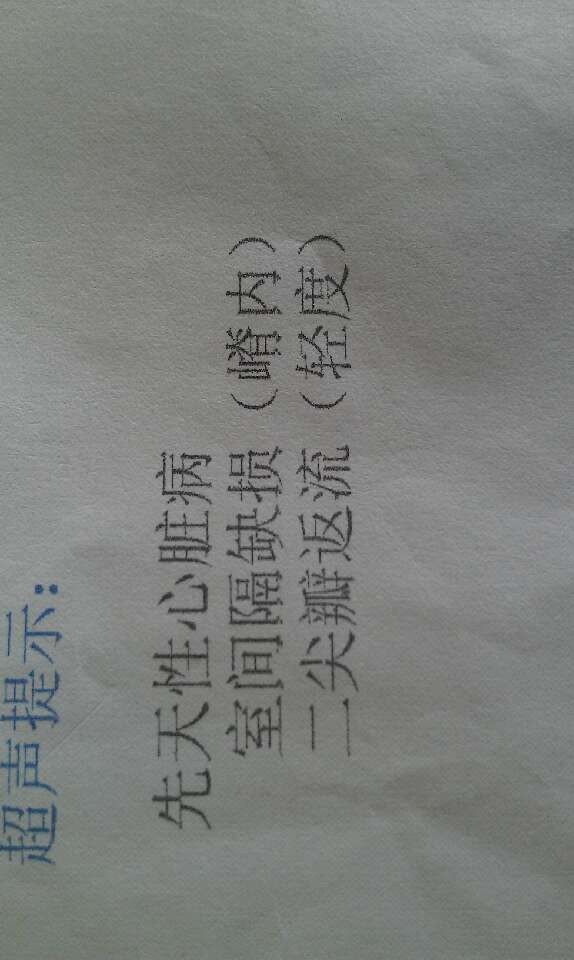 超声提示:
先天性心脏病
室间隔缺损（嵴内）
二尖瓣返流（轻度）